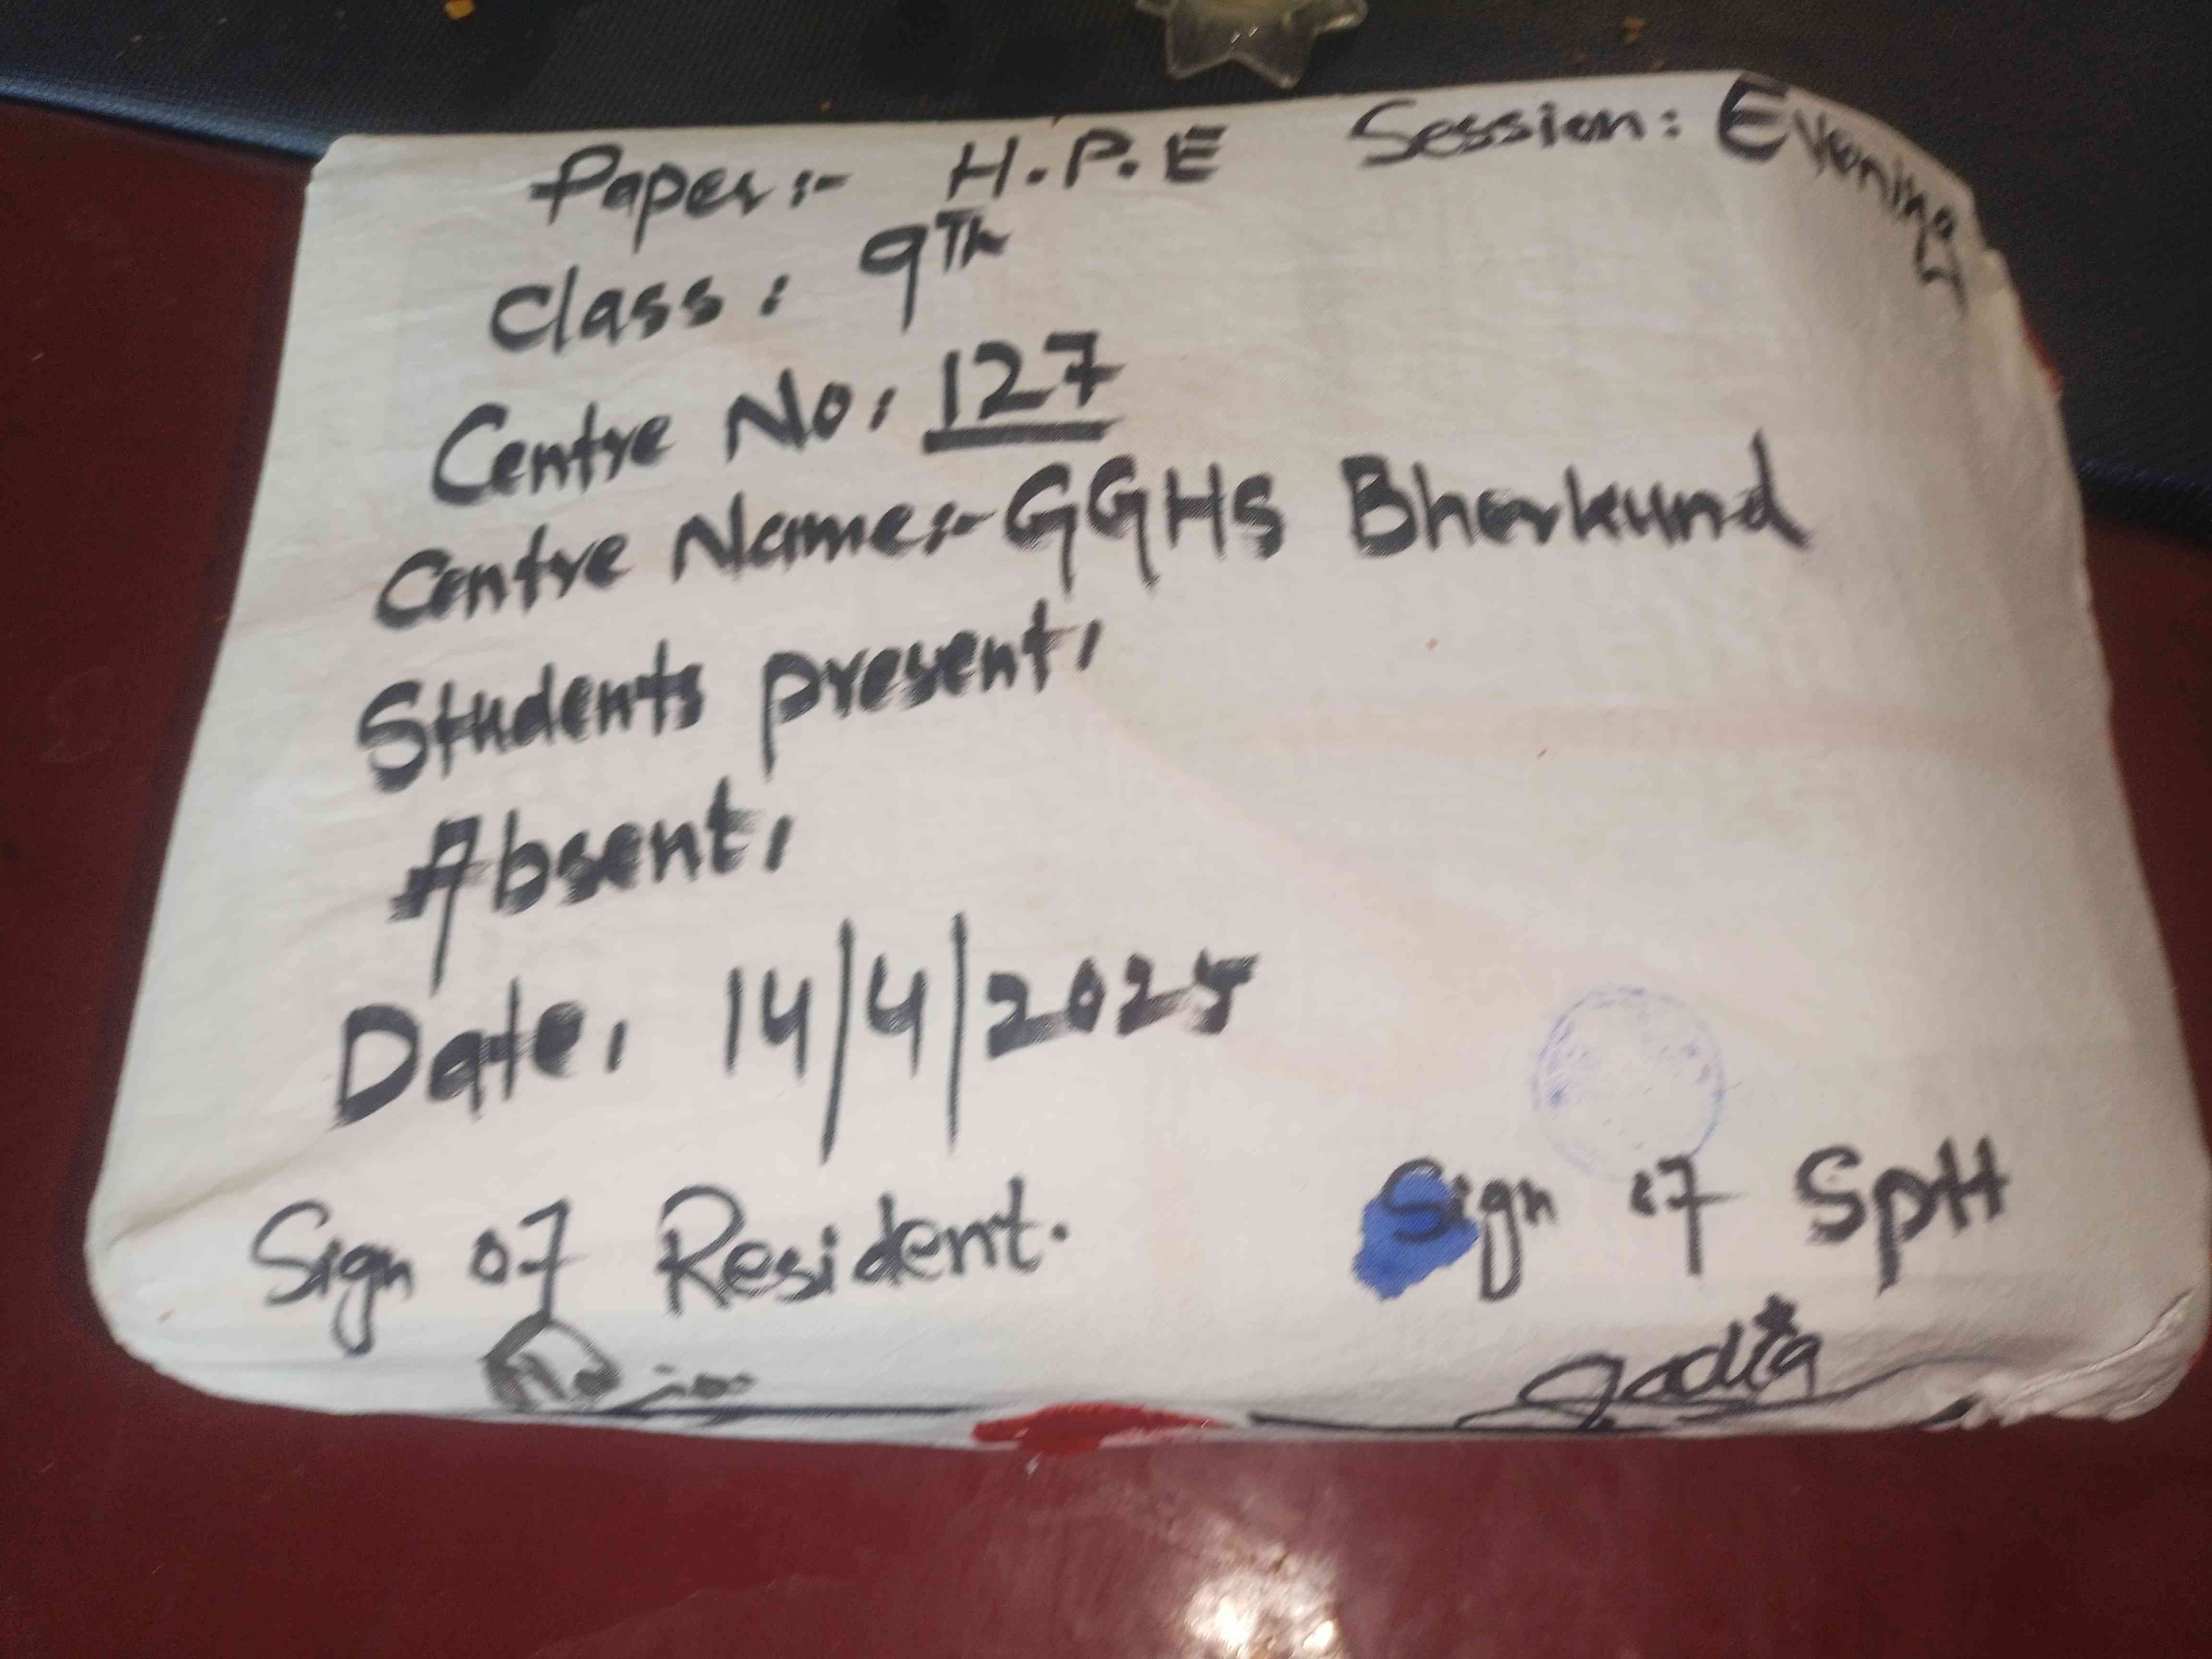 Paper:- H.P.E Session: Evening
Class: 9Th
Centre No: 127
Centre Name:- GGHS Bherkund
Students present:
Absent:
Date: 14/4/2025
Sign of Resident. Sign of SpH
Sadia